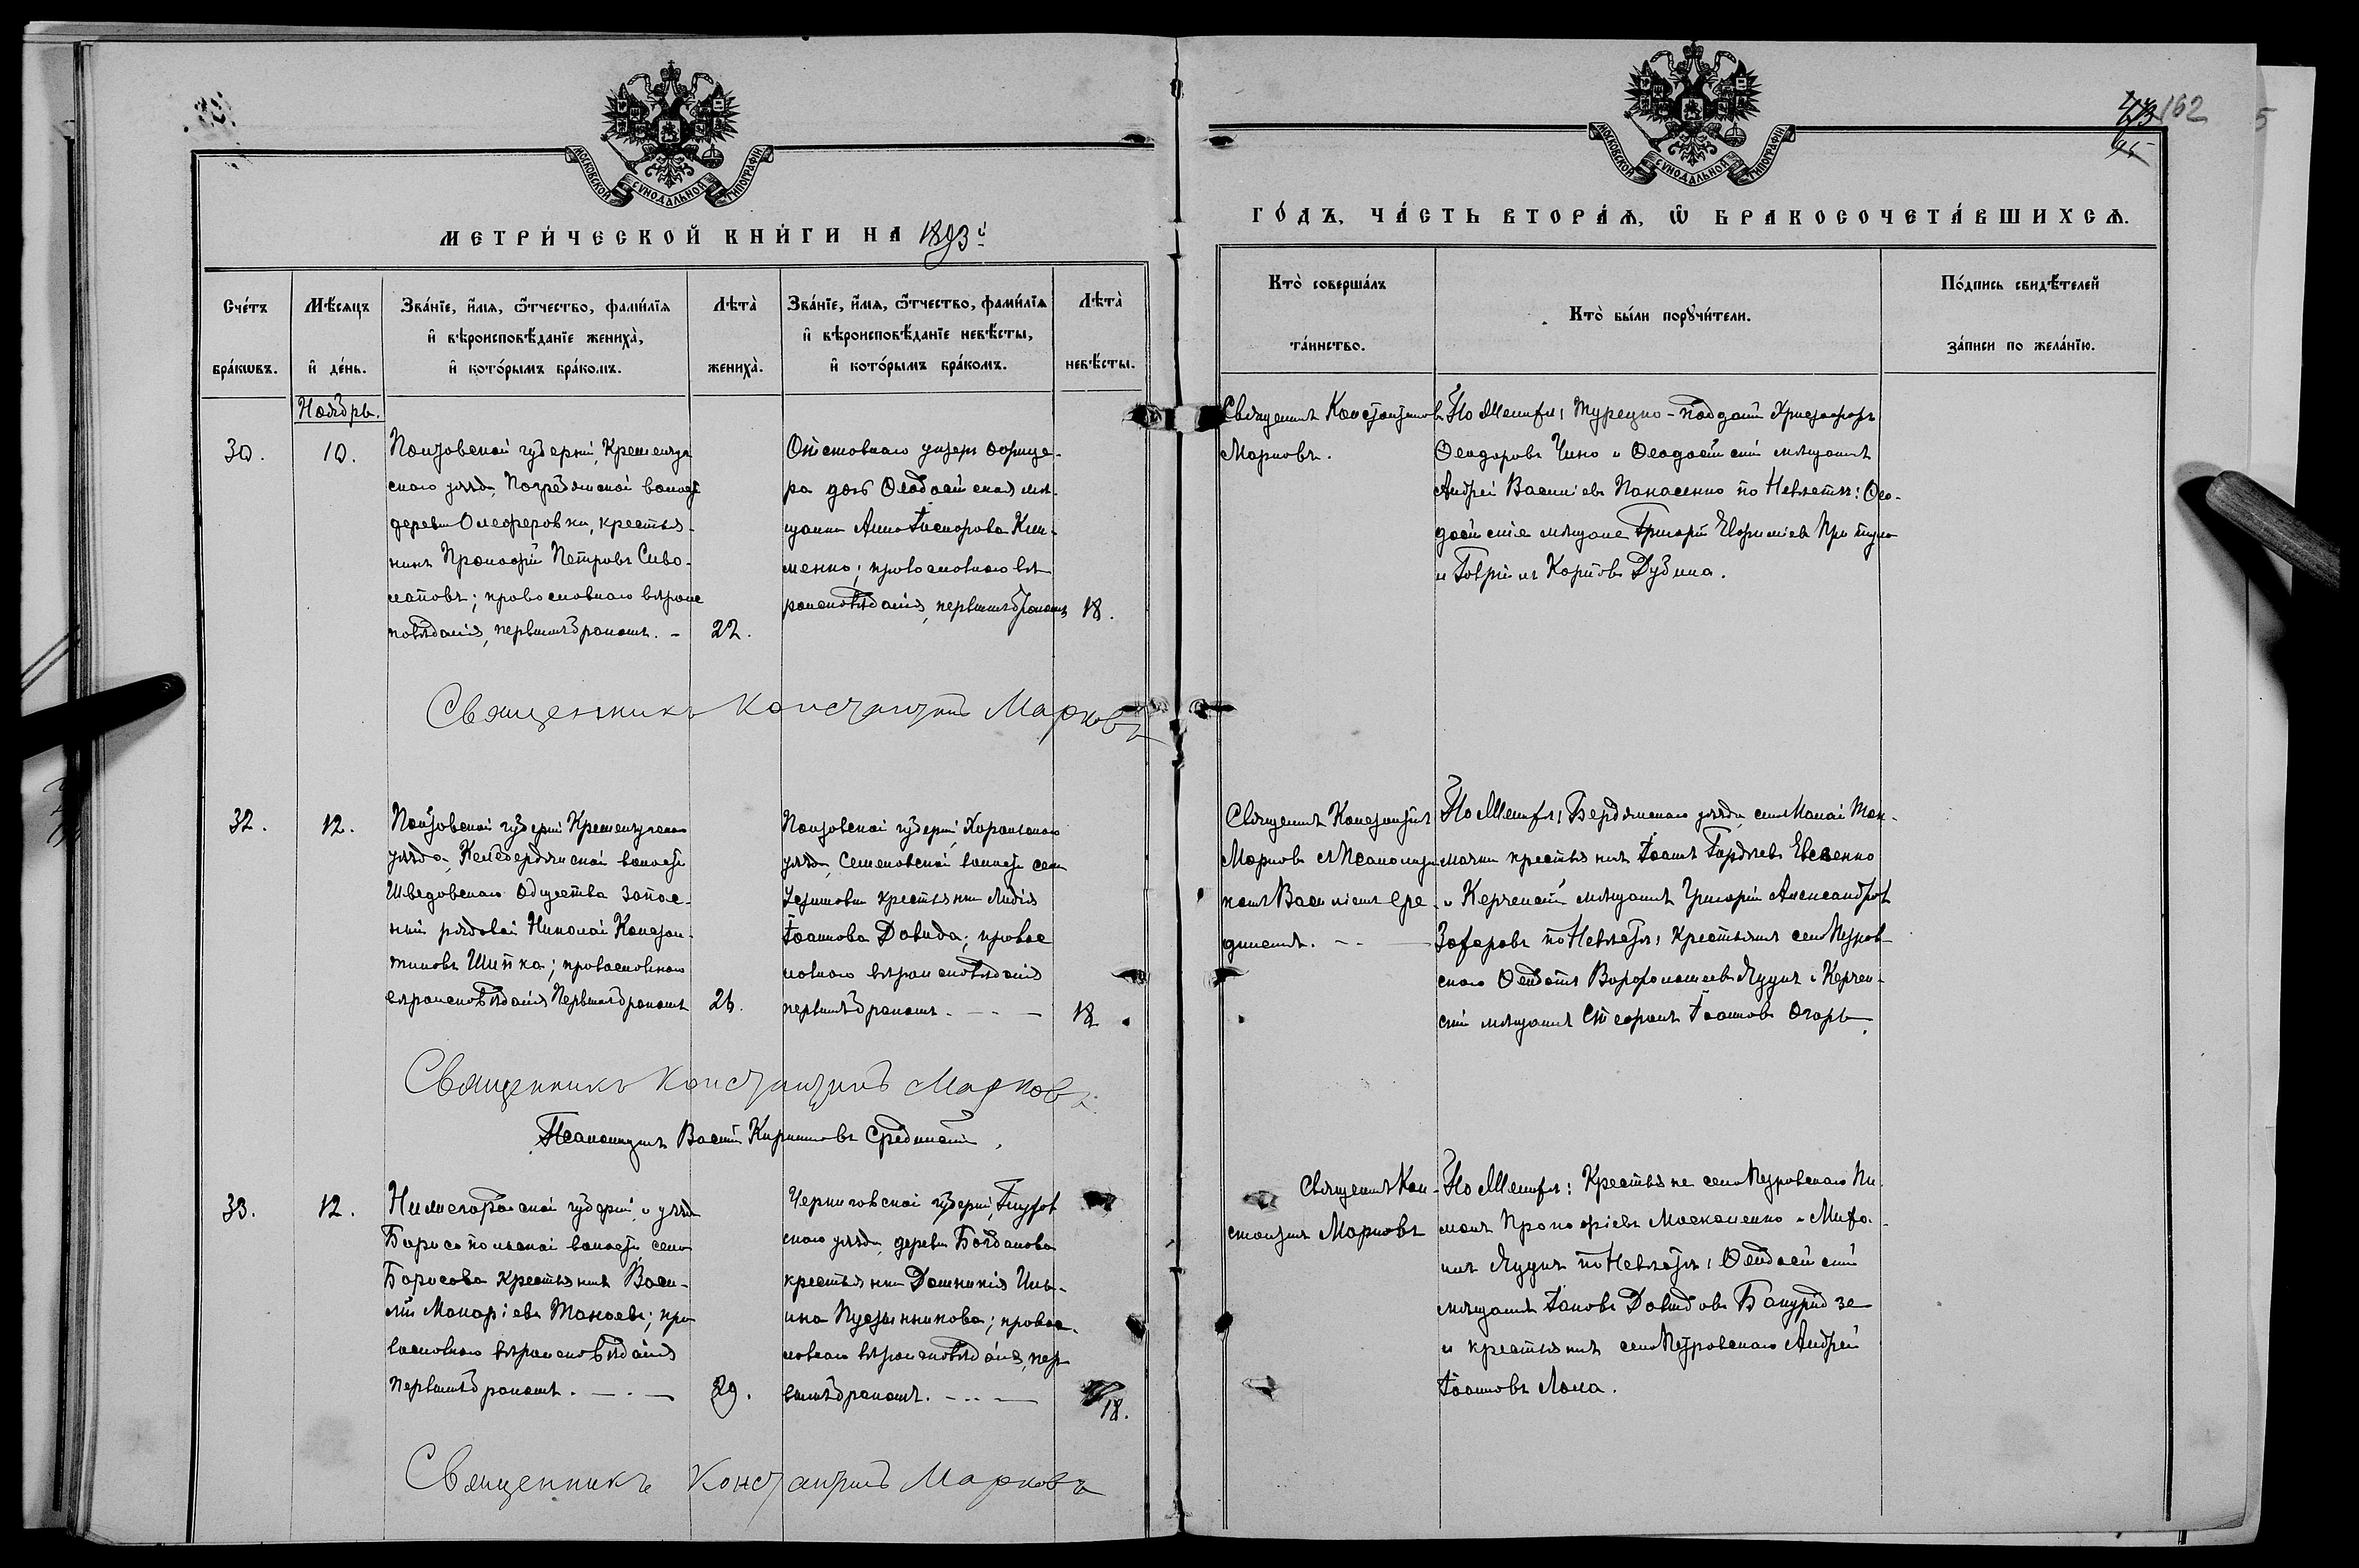 162
МОСКОВСКОЙ СѴНОДАЛЬНОЙ ТИПОГРАФІИ
МЕТРИ́ЧЕСКОЙ КНИ́ГИ НА 1893й
Сче́тъ бра́кѡвъ.
Мѣ́сяцъ и҆ де́нь.
Зва́нїе, и҆́мя, ѻ҆́тчество, фами́лїя
и҆ вѣроисповѣ́данїе жениха̀,
и҆ кото́рымъ бра́комъ.
Лѣта̀ жениха̀.
Зва́нїе, и҆́мя, ѻ҆́тчество, фами́лїя
и҆ вѣроисповѣ́данїе невѣ́сты,
и҆ кото́рымъ бра́комъ.
Лѣта̀ невѣ́сты.
Ноябрь.
30.
10.
Полтовской губерніи, Кременчуг
скаго уѣзда,
деревни Олеферовки, крестья-
нинъ Прокофій Петровъ Сиво-
лаповъ; православнаго вѣроис
повѣданія, первымъ бракомъ. –
22.
Отставнаго унтеръ офице-
ра дочь Ѳеодосійская мѣ-
щанка Анна Клим-
менко; православнаго вѣ
роисповѣданія, первымъ бракомъ
18.
Священникъ Константинъ Марковъ
32.
12.
Полтовской губерніи Кременчугскаго
уѣзда, Келебердянской волости
Шведовскаго общества запас-
ный рядовой Николай Констан-
тиновъ Шипка; православнаго
вѣроисповѣданія Первымъ бракомъ
26.
Полтовской губерніи, Хорольскаго
уѣзда, Семеновской волости села
Устимовки крестьянка Лидія
Іоаннова Довида; правос
лавнаго вѣроисповѣданія
первымъ бракомъ. – – –
18.
Священникъ Константинъ Марковъ
Псаломщикъ Василій Кирилловъ Срединскій.
33.
12.
Нижегородской губерніи, и уѣзда
Борисопольской волости, села
Борисова крестьянинъ Васи-
лій Макаріевъ Токаевъ; пра
вославнаго вѣроисповѣданія
Первымъ бракомъ. – . –
29.
Черниговской губерніи, Глухов
скаго уѣзда, деревни Богданова
крестьянка Домникія Иль-
ина Пустынникова; правос-
лавнаго вѣроисповѣданія, пер
вымъ бракомъ. – .. –
18.
Священникъ Константинъ Марковъ
МОСКОВСКОЙ СѴНОДАЛЬНОЙ ТИПОГРАФІИ
ГО́ДЪ, ЧА́СТЬ ВТОРА́Я, Ѡ҆ БРАКОСОЧЕТА́ВШИХСЯ.
Кто̀ соверша́лъ та́инство.
Кто̀ бы́ли порꙋчи́тели.
По́дпись свидѣ́телей за́писи по жела́нїю.
Священникъ Константинъ
Марковъ.
По Женихѣ: Турецко-подданый Христофоръ
Ѳеодоровъ Чино и Ѳеодосійскій мѣщанинъ
Андрей Василіевъ Панасенко по Невѣстѣ: Ѳео-
досійскіе мѣщане Григорій Евфиміевъ
и Гавріилъ Карповъ Дубина.
Священникъ Константинъ
Марковъ съ Псаломщи
комъ Василіемъ Сре-
динскимъ. – –
По Женихѣ: Бердянскаго уѣзда, села Малой Ток-
мачки крестьянинъ Іоаннъ Гордѣевъ Евсеенко
и Керченскій мѣщанинъ Григорій Александровъ
Захаровъ по Невѣстѣ: крестьянинъ села Петров-
скаго Ѳеодотъ Варфоломеевъ Яцунъ и Керчен-
скій мѣщанинъ Стефанъ Іоанновъ Огарь.
Священникъ Кон-
стантинъ Марковъ
По Женихѣ: Крестьяне села Петровскаго Ни
Прокофіевъ Москаленко и Миха-
илъ Яцунъ по Невѣстѣ: Ѳеодосійскій
мѣщанинъ Іаковъ Давидовъ Бакуридзе
и крестьянинъ села Петровскаго Андрей
Іоанновъ Лола.